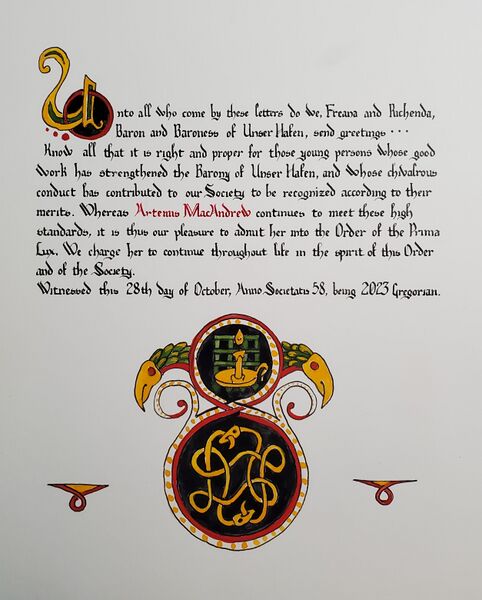 Unto all who come by these letters do we, Freana and Richenda,
Baron and Baroness of Unser Hafen, send greetings ···
Know all that it is right and proper for those young persons whose good
work has strengthened the Barony of Unser Hafen, and whose chivalrous
conduct has contributed to our Society to be recognized according to their
merits. Whereas Artemis MacAndrew continues to meet these high
standards, it is thus our pleasure to admit her into the Order of the Prima
Lux. We charge her to continue throughout life in the spirit of this Order
and of the Society.
Witnessed this 28th day of October, Anno Societatis 58, being 2023 Gregorian.